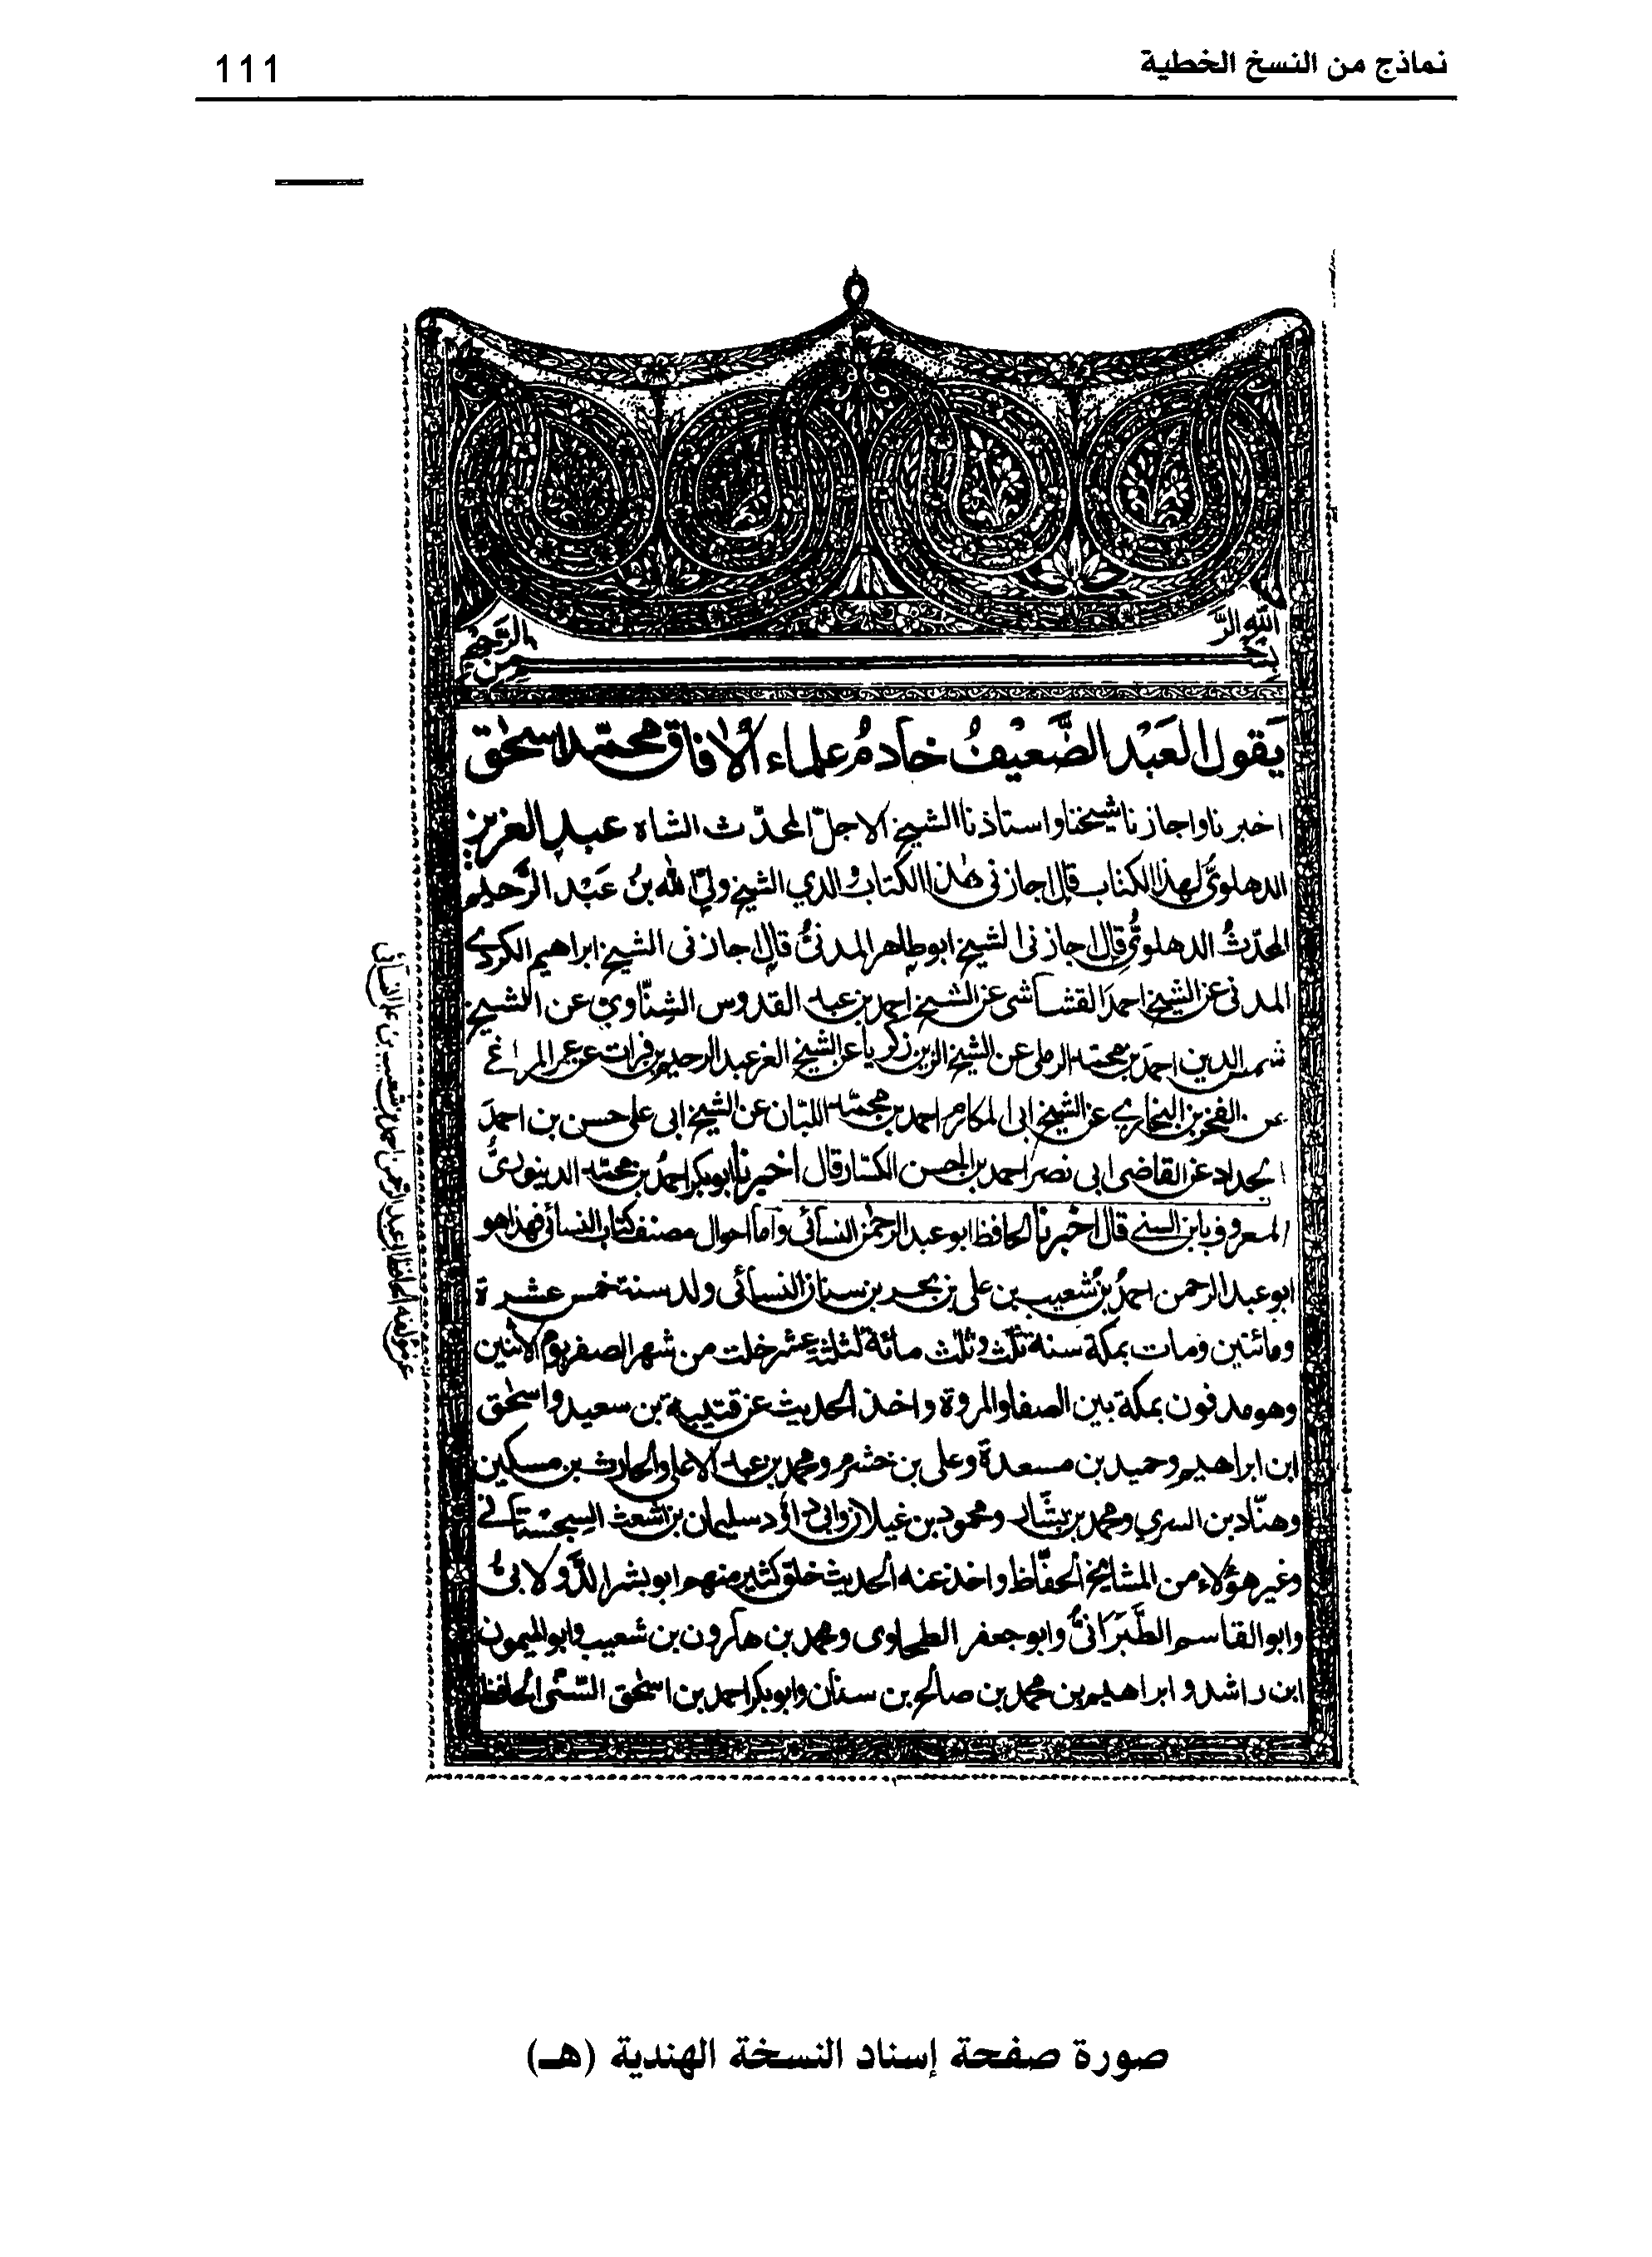 نماذج من النسخ الخطية
111
بسم الله الرحمن الرحيم
يقول العبد الضعيف خادم علماء الافاق محمد اسحٰق
اخبرنا واجازنا شيخنا واستاذنا الشيخ الاجل المحدث الشاه عبد العزيز
الدهلوي لهذا الكتاب قال اجازني هذا الكتاب والدي الشيخ ولي الله بن عبد الرحيم
المحدث الدهلوي قال اجازني الشيخ ابو طاهر المدني قال اجازني الشيخ ابراهيم الكردي
المدني عن الشيخ احمد القشاشي عن الشيخ احمد بن عبد القدوس الشناوي عن الشيخ
شمس الدين احمد بن محمد الرملي عن الشيخ الزين زكريا عن الشيخ العز عبد الرحيم بن فرات عن عمر المراغي
عن الفخر بن البخاري عن الشيخ ابي المكارم احمد بن محمد اللبان عن الشيخ ابي علي حسن بن احمد
الحداد عن القاضي ابي نصر احمد بن الحسن الكسار قال اخبرنا ابو بكر احمد بن محمد الدينوري
المعروف بابن السني قال اخبرنا الحافظ ابو عبد الرحمٰن النسائي واما احوال مصنف كتاب النسائي فهذا هو
ابو عبد الرحمن احمد بن شعيب بن علي بن بحر بن سنان النسائي ولد سنة خمس عشرة
ومائتين ومات بمكة سنة ثلث وثلث مائة لثلثة عشر خلت من شهر الصفر يوم الاثنين
وهو مدفون بمكة بين الصفا والمروة واخذ الحديث عن قتيبة بن سعيد واسحٰق
ابن ابراهيم وحميد بن مسعدة وعلي بن خشرم ومحمد بن عبد الاعلى والحارث بن مسكين
وهناد بن السري ومحمد بن بشار ومحمود بن غيلان وابي داؤد سليمان بن اشعث السجستاني
وغير هؤلاء من المشايخ الحفاظ واخذ عنه الحديث خلق كثير منهم ابو بشر الدولابي
وابو القاسم الطبراني وابو جعفر الطحاوي ومحمد بن هارون بن شعيب وابو الميمون
ابن راشد وابراهيم بن محمد بن صالح بن سنان وابو بكر احمد بن اسحٰق السني الحافظ
صورة صفحة إسناد النسخة الهندية (هـ)